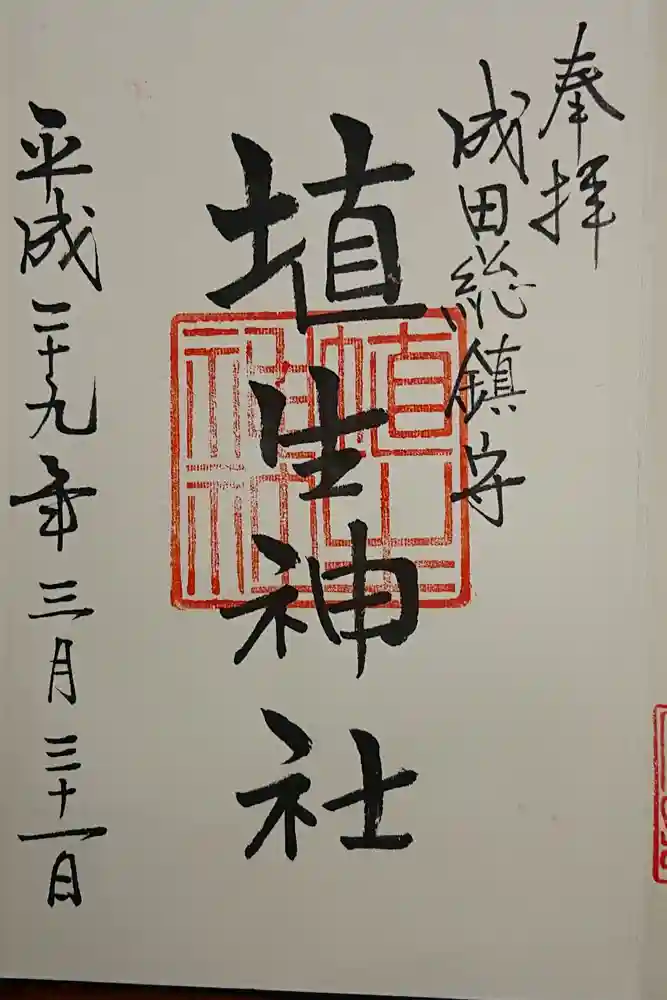 奉拝
成田総鎮守
埴生神社
平成二十九年三月三十一日